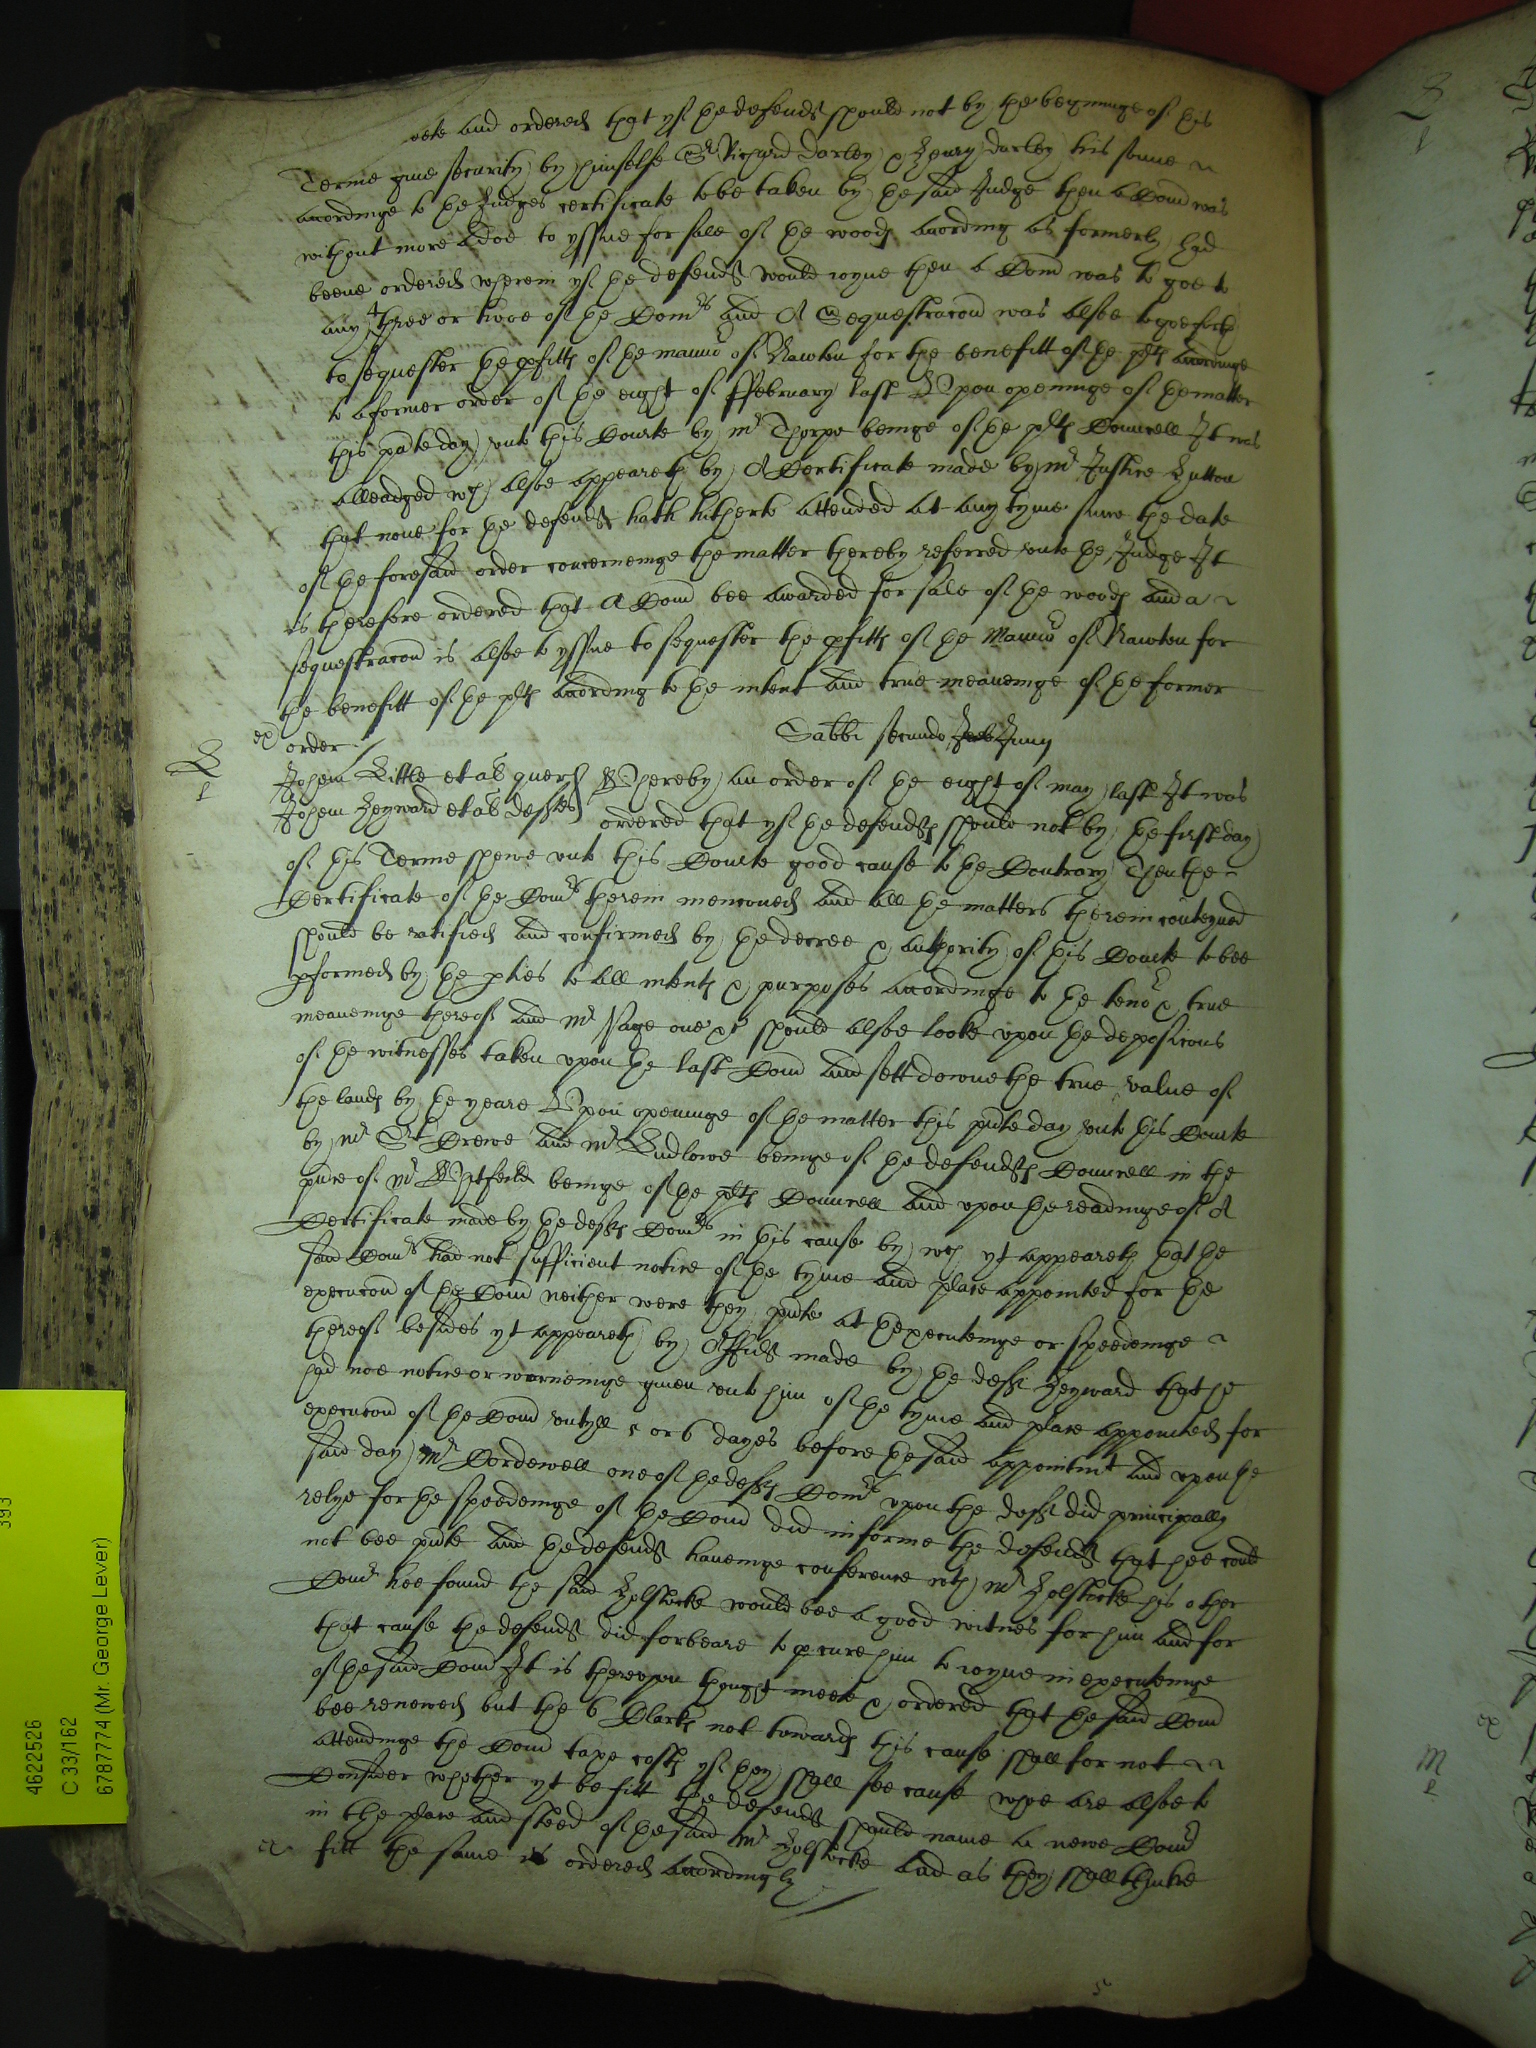 and ordered that yf the defendt should not by the beginninge of this
Terme give security by himselfe Sr Richard Darley & Henry Darley his sonne
accordinge to the Judges certificate to be taken by the said Judge then a Com̄ was
without more adoe to yssue for sale of the woodℯ accordinge as formerly had
beene ordered wherein yf the defendt would ioyne then a Com̄ was to goe to
any three or twoe of the Comrs And A Sequestracon was alsoe to goe forth
to sequester the ꝓfittℯ of the mannor of Rawton for the benefitt of the pltℯ accordinge
to a former order of the eight of ffebruary last Upon openinge of the matter
this pn̄te day unto this Courte by mr Thorpe beinge of the pltℯ Councell It was
alleadged wch alsoe appeareth by A Certificate made by mr Justice Hutton
that none for the defendt hath hitherto attended at any tyme since the date
of the foresaid order concerneinge the matter thereby referred unto the Judge It
is therefore ordered that A Com̄ bee awarded for sale of the woodℯ and a
sequestracon is alsoe to yssue to sequester the ꝓfittℯ of the Mannor of Rawton for
the benefitt of the pltℯ accordinge to the intent and true meaneinge of the former
ex order
Sabbī secundo Junij
L Johem Little et al quer Whereby an order of the eight of may last It was
Johem Heyward et al deftes ordered that yf the defendtℯ should not by the first day
of this Terme shewe unto this Courte good cause to the Contrary Then the
Certificate of the Comrs therein menconed and all the matters therein conteyned
should be ratified and confirmed by the decree & authority of this Courte to bee
ꝑformed by the ꝑties to all intentℯ & purposes accordinge to the tenor & true
meaneinge thereof and mr Page one &c should alsoe looke upon the deposicons
of the witnesses taken upon the last Com̄ and sett downe the true value of
the landℯ by the yeare Upon openinge of the matter this pn̄te day unto this Courte
by mr St Drewe and mr Ludlowe beinge of the defendtℯ Councell in the
pn̄ce of mr Whitfeild beinge of the pltℯ Councell and upon the readinge of A
Certificate made by the deftℯ Comrs in this cause by wch yt appeareth that the
said Comrs had not sufficient notice of the tyme and place appointed for the
execucon of the Com̄ neither were they pn̄te at the executeinge or speedeinge
thereof besides yt appeareth by Affidt made by the deft Heyward that he
had noe notice or warneinge given unto him of the tyme and place appointed for
execucon of the Com̄ untyll 5 or 6 dayes before the said appointmt and upon the
said day mr Cordewell one of the deftℯ Comrs upon the deft did principally
relye for the speedeinge of the Com̄ did informe the defendt that hee could
not bee pn̄te And the defendt haveinge conference wth mr Holstocke his other
Comr hee found the said Holstocke would bee a good witnes for him and for
that cause the defendt did forbeare to ꝓcure him to ioyne in executeinge
of the said Com̄ It is thereupon thought meete & ordered that the said Com̄
bee renewed but the 6 Clarkℯ not towardℯ this cause shall for not
attendinge the Com̄ taxe costℯ yf they shall see cause whoe are alsoe to
Consider whether yt be fitt the defendt should name a newe Comr
in the place and steed of the said mr Holstocke And as they shall thinke
ex fitt the same is ordered accordingly
4622526
C 33/162
6787774 (Mr. George Lever)
393
M